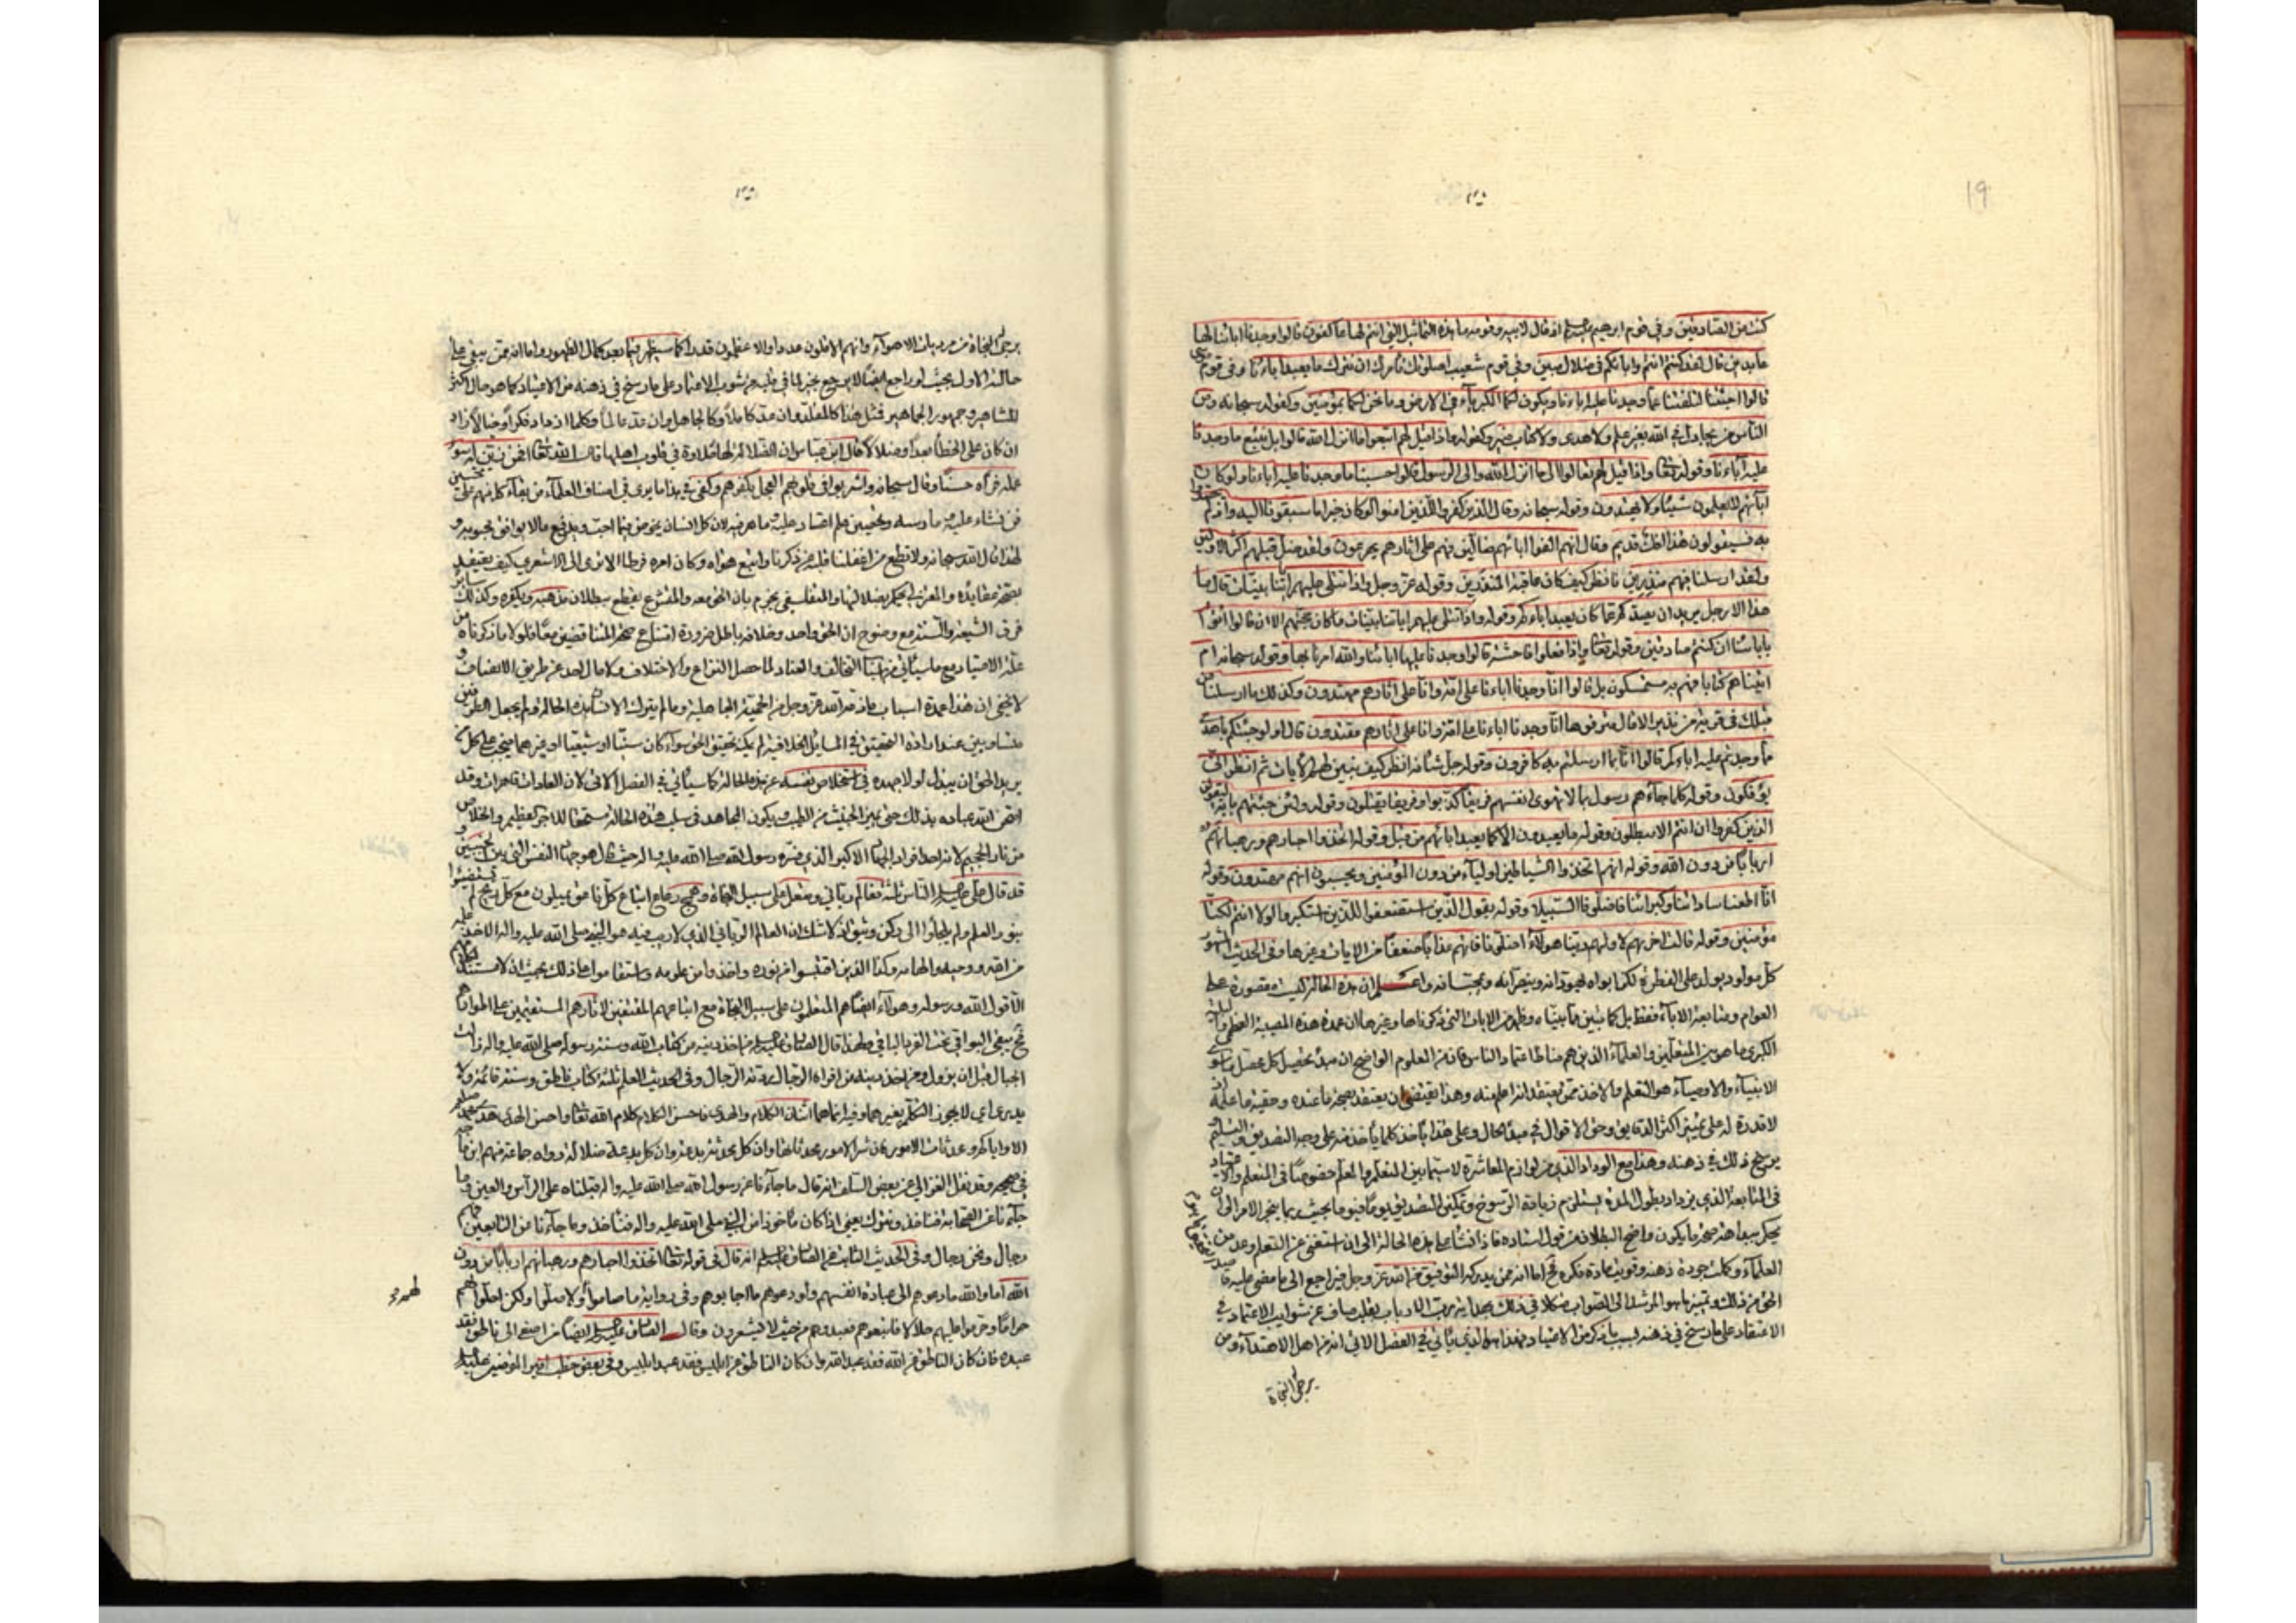 19
كنت من الصادقين وفي قوم ابرهيم اذ قال لابيه وقومه ما هذه التماثيل التي انتم لها عاكفون قالوا وجدنا اباءنا لها
عابدين قال لقد كنتم انتم واباؤكم في ضلال مبين وفي قوم شعيب اصلوتك تامرك ان نترك ما يعبد اباءنا وفي قوم موسى
قالوا اجئتنا لتلفتنا عما وجدنا عليه اباءنا وتكون لكما الكبرياء في الارض وما نحن لكما بمؤمنين وكقوله سبحانه ومن
الناس من يجادل في الله بغير علم ولا هدى ولا كتاب منير وكقوله واذا قيل لهم اتبعوا ما انزل الله قالوا بل نتبع ما وجدنا
عليه آباءنا وقوله تعا واذا قيل لهم تعالوا الى ما انزل الله والى الرسول قالوا حسبنا ما وجدنا عليه اباءنا ولو كان
اباؤهم لا يعلمون شيئا ولا يهتدون وقوله سبحانه وقال الذين كفروا للذين امنوا لو كان خيرا ما سبقونا اليه واذ لم يهتدوا
به فسيقولون هذا افك قديم وقال انهم الفوا اباءهم ضالين فهم على اثارهم يهرعون ولقد ضل قبلهم اكثر الاولين
ولقد ارسلنا فيهم منذرين فانظر كيف كان عاقبة المنذرين وقوله عز وجل واذا تتلى عليهم اياتنا بينات قالوا ما
هذا الا رجل يريد ان يصدكم عما كان يعبد اباءكم وقوله واذا تتلى عليهم اياتنا بينات ما كان حجتهم الا ان قالوا ائتوا
بابائنا ان كنتم صادقين وقوله تعا واذا فعلوا فاحشة قالوا وجدنا عليها اباءنا والله امرنا بها وقوله سبحانه ام
اتيناهم كتابا فهم به مستمسكون بل قالوا انا وجدنا اباءنا على امة وانا على اثارهم مهتدون وكذلك ما ارسلنا من
قبلك في قرية من نذير الا قال مترفوها انا وجدنا اباءنا على امة وانا على اثارهم مقتدون قال اولو جئتكم باهدى
مما وجدتم عليه اباءكم قالوا انا بما ارسلتم به كافرون وقوله جل شانه انظر كيف نبين لهم الايات ثم انظر انى
يؤفكون وقوله كلما جاءهم رسول بما لا تهوى انفسهم فريقا كذبوا وفريقا يقتلون وقوله ولئن جئتهم باية ليقولن
الذين كفروا ان انتم الا مبطلون وقوله ما يعبدون الا كما يعبد اباؤهم من قبل وقوله اتخذوا احبارهم ورهبانهم
اربابا من دون الله وقوله انهم اتخذوا الشياطين اولياء من دون المؤمنين ويحسبون انهم مهتدون وقوله
انا اطعنا سادتنا وكبراءنا فاضلونا السبيلا وقوله يقول الذين استضعفوا للذين استكبروا لولا انتم لكنا
مؤمنين وقوله قالت اخريهم لاوليهم ربنا هؤلاء اضلونا فاتهم عذابا ضعفا من الايات وغيرها وفي الحديث المشهور
كل مولود يولد على الفطرة لكن ابواه يهودانه وينصرانه ويمجسانه واعلم ان هذه الحالة ليست مقصورة على
العوام ومتابعة الاباء فقط بل كما يتبين مما بيناه وظهر من الايات التي ذكرناها وغيرها ان عمدة هذه المصيبة العظمى
الكبرى ما هو بين المتعلمين والعلماء الذين هم مناط اعتماد الناس فانه من العلوم الواضح ان مبدء تحصيل كل محصل ما سوى
الانبياء والاوصياء هو التعلم والاخذ ممن يعتقد انه اعلم منه وهذا يقتضي ان يعتقد بصحة ما عنده وحقية ما علمه
لا قدرة له على تمييز اكثر الدقايق وحق الاقوال في مبدء الحال وعلى هذا ياخذ كلما ياخذ منه على وجه التصديق والتسليم
يرسخ ذلك في ذهنه وهذا مع الوداد الذي من لوازم المعاشرة لا سيما بين المتعلم والمعلم خصوصا في المتعلم والاعتياد
في المتابعة الذي يزداد بطول المدة يستلزم زيادة الرسوخ وتمكين التصديق يوما فيوما بحيث ربما ينجر الامر الى ان
يحكم ببداهة صحة ما يكون واضح البطلان من قول استاده فاذا نشأ على هذه الحالة الى ان استغنى عن التعلم وعد من
العلماء وكملت جودة ذهنه وقويت مادة فكره فح اما انه ممن يدركه التوفيق من الله عز وجل فيراجع الى ما مضى عليه
الاعتقاد على ما رسخ في ذهنه بسبب ما ذكر من الاعتياد فهذا هو الذي ياتي في الفصل الاتي انه من اهل الاهتداء ومن
يرجى النجاة
يرجى النجاة من مرديات الاهواء وانهم الاقلون عددا والاعظمون قدرا كما سيظهر فيما بعد كمال الظهور واما انه ممن يبقى على
حالته الاول بحيث لو راجع ايضا لا يرجع بخير لما في قلبه من شوب الاعتماد على ما رسخ في ذهنه من الاعتياد كما هو حال اكثر
المشاهير وجمهور الجماهير فمثل هذا كالمقلد وان عد كاملا وكالجاهل وان عد عالما وكلما ازداد فكرا وخيالا زاد
ان كان على الخطأ بعدا وضلالا كما قال ابن عباس ان الضلالة لها حلاوة في قلوب اهلها قال الله تعا افمن زين له سوء
عمله فرآه حسنا وقال سبحانه واشربوا في قلوبهم العجل بكفرهم وكفى في هذا ما يرى في اصناف العلماء من بقاء كل منهم على تحسين
فن نشاء عليه وما درسه وتحسين علم اعتاد عليه وما عرفه لان كل انسان يخوض فيما احب ويدفع ما لا يوافق محبوبه و
لهذا قال الله سبحانه ولا تطع من اغفلنا قلبه عن ذكرنا واتبع هواه وكان امره فرطا الا ترى الى الاشعري كيف يعتقد
بصحة عقايده والمعتزلي يحكم بضلالتها والمتفلسف يجزم بان الحق معه والمتشرع يقطع ببطلان مذهبه ويكفره وكذلك ساير
فرق الشيعة والسنة مع وضوح ان الحق واحد وخلافه باطل ضرورة امتناع صحة المتناقضين معا فلولا ما ذكرناه من
علة الاعتياد مع ما سيأتي من التخالف والعناد لما حصل النزاع والاختلاف ولا مال احد عن طريق الانصاف و
لا يخفى ان هذا عمدة اسباب ما ذمه الله عز وجل من الحمية الجاهلية وما لم يترك الانسان هذه الحالة ولم يجعل الطرفين
متساويين عند ارادة التحقيق في المسايل الخلافية لم يمكنه تحقيق الحق سواء كان سنيا او شيعيا او غيرهما فيجب على كل من
يريد الحق ان يبذل اولا جهده في استخلاص نفسه عن هذه الحالة كما سيأتي في الفصل الاتي لان العادات قاهرات وقد
امتحن الله عباده بذلك حتى يميز الخبيث من الطيب ويكون المجاهد في سلب هذه الحالة مستحقا للاجر العظيم والخلاص
من نار الجحيم لانه احد افراد الجهاد الاكبر الذي فسره رسول الله صلى الله عليه واله حيث قال هو جهاد النفس التي بين جنبيك و
قد قال علي الناس ثلثة فعالم رباني ومتعلم على سبيل النجاة وهمج رعاع اتباع كل ناعق يميلون مع كل ريح لم يستضيئوا
بنور العلم ولم يلجأوا الى ركن وثيق اذ لا شك ان العالم الرباني الذي لا ريب فيه هو النبي صلى الله عليه واله الاخذ علمه
من الله ووحيه والهامه وكذا الذين اقتبسوا من نوره واخذوا من علومه واستقاموا على ذلك بحيث ان لا مستند لكلامهم
الا قول الله ورسوله وهؤلاء ايضا هم المتعلمون على سبيل النجاة مع اتباعهم المقتفين لاثارهم المستقيمين على اطوارهم
فح يبقى البواقي تحت الفرد الباقي ولهذا قال الصادق من اخذ دينه من كتاب الله وسنة رسوله صلى الله عليه واله زالت
الجبال قبل ان يزول ومن اخذ دينه من افواه الرجال ردته الرجال وفي الحديث العلم ثلثة كتاب ناطق وسنة قائمة ولا
ادري اي لا يجوز التكلم بغيرهما وفيه انما هما اثنان الكلام والهدى فاحسن الكلام كلام الله تعا واحسن الهدى هدى محمد
الا واياكم ومحدثات الامور فان شر الامور محدثاتها وان كل محدثة بدعة وان كل بدعة ضلالة رواه جماعة منهم ابن ماجه
في صحيحه وقد نقل الغزالي عن بعض السلف انه قال ما جآءنا عن رسول الله صلى الله عليه واله قبلناه على الرأس والعين وما
جآءنا عن الصحابة فناخذ ونترك يعني اذا كان مأخوذا من النبي صلى الله عليه واله فنأخذ وما جآءنا عن التابعين فهم
رجال ونحن رجال وفي الحديث الثابت عن الصادق انه قال في قوله تعا اتخذوا احبارهم ورهبانهم اربابا من دون
الله اما والله ما دعوهم الى عبادة انفسهم ولو دعوهم ما اجابوهم وفي رواية ما صاموا ولا صلوا ولكن احلوا لهم
حراما وحرموا عليهم حلالا فاتبعوهم فعبدوهم من حيث لا يشعرون وقال الصادق ايضا من اصغى الى ناطق فقد
عبده فان كان الناطق عن الله فقد عبد الله وان كان الناطق عن ابليس فقد عبد ابليس وفي بعض خطب امير المؤمنين